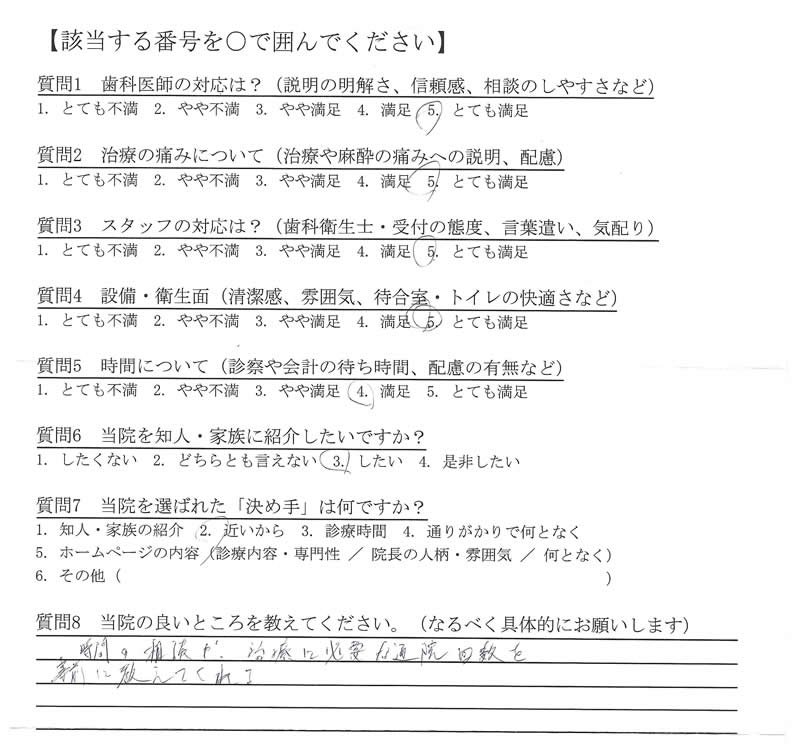 【該当する番号を○で囲んでください】
質問1 歯科医師の対応は？（説明の明解さ、信頼感、相談のしやすさなど）
1. とても不満 2. やや不満 3. やや満足 4. 満足 5. とても満足
質問2 治療の痛みについて（治療や麻酔の痛みへの説明、配慮）
1. とても不満 2. やや不満 3. やや満足 4. 満足 5. とても満足
質問3 スタッフの対応は？（歯科衛生士・受付の態度、言葉遣い、気配り）
1. とても不満 2. やや不満 3. やや満足 4. 満足 5. とても満足
質問4 設備・衛生面（清潔感、雰囲気、待合室・トイレの快適さなど）
1. とても不満 2. やや不満 3. やや満足 4. 満足 5. とても満足
質問5 時間について（診察や会計の待ち時間、配慮の有無など）
1. とても不満 2. やや不満 3. やや満足 4. 満足 5. とても満足
質問6 当院を知人・家族に紹介したいですか？
1. したくない 2. どちらとも言えない 3. したい 4. 是非したい
質問7 当院を選ばれた「決め手」は何ですか？
1. 知人・家族の紹介 2. 近いから 3. 診療時間 4. 通りがかりで何となく
5. ホームページの内容（診療内容・専門性 ／ 院長の人柄・雰囲気 ／ 何となく）
6. その他（ ）
質問8 当院の良いところを教えてください。（なるべく具体的にお願いします）
時間の相談や、治療に必要な通院回数を
事前に教えてくれる